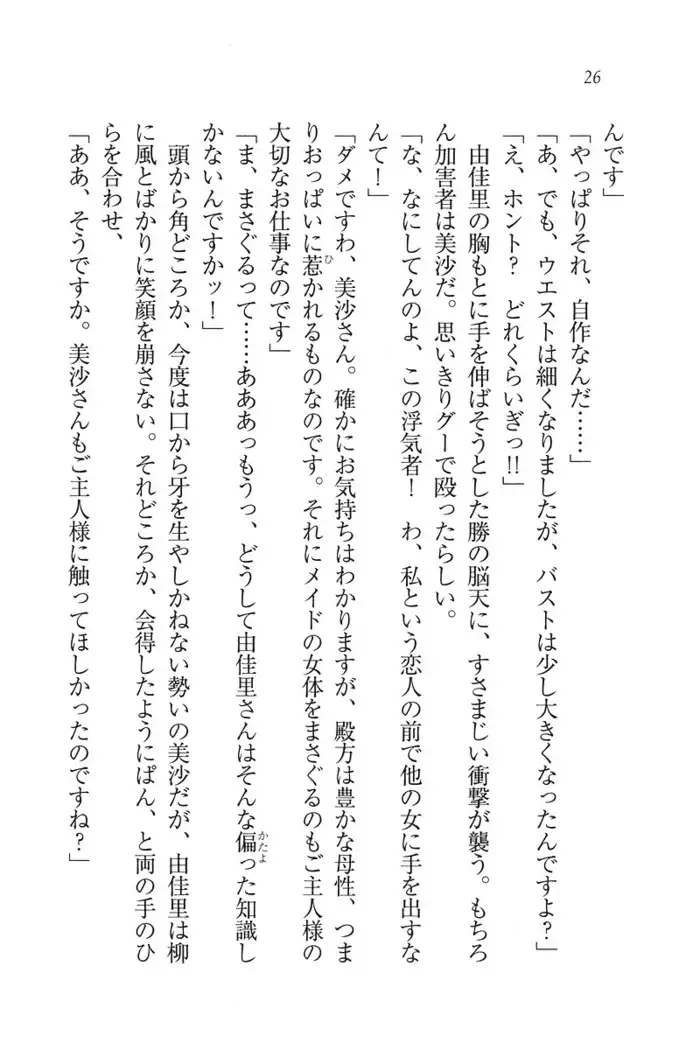 26
んです」
「やっぱりそれ、自作なんだ……」
「あ、でも、ウエストは細くなりましたが、バストは少し大きくなったんですよ？」
「え、ホント？　どれくらいぎっ!!」
　由佳里の胸もとに手を伸ばそうとした勝の脳天に、すさまじい衝撃が襲う。もちろ
ん加害者は美沙だ。思いきりグーで殴ったらしい。
「な、なにしてんのよ、この浮気者！　わ、私という恋人の前で他の女に手を出すな
んて！」
「ダメですわ、美沙さん。確かにお気持ちはわかりますが、殿方は豊かな母性、つま
りおっぱいに惹かれるものなのです。それにメイドの女体をまさぐるのもご主人様の
大切なお仕事なのです」
「ま、まさぐるって……あああっもうっ、どうして由佳里さんはそんな偏った知識し
かないんですかッ！」
　頭から角どころか、今度は口から牙を生やしかねない勢いの美沙だが、由佳里は柳
に風とばかりに笑顔を崩さない。それどころか、会得したようにぱん、と両の手のひ
らを合わせ、
「ああ、そうですか。美沙さんもご主人様に触ってほしかったのですね？」
ひ
かたよ